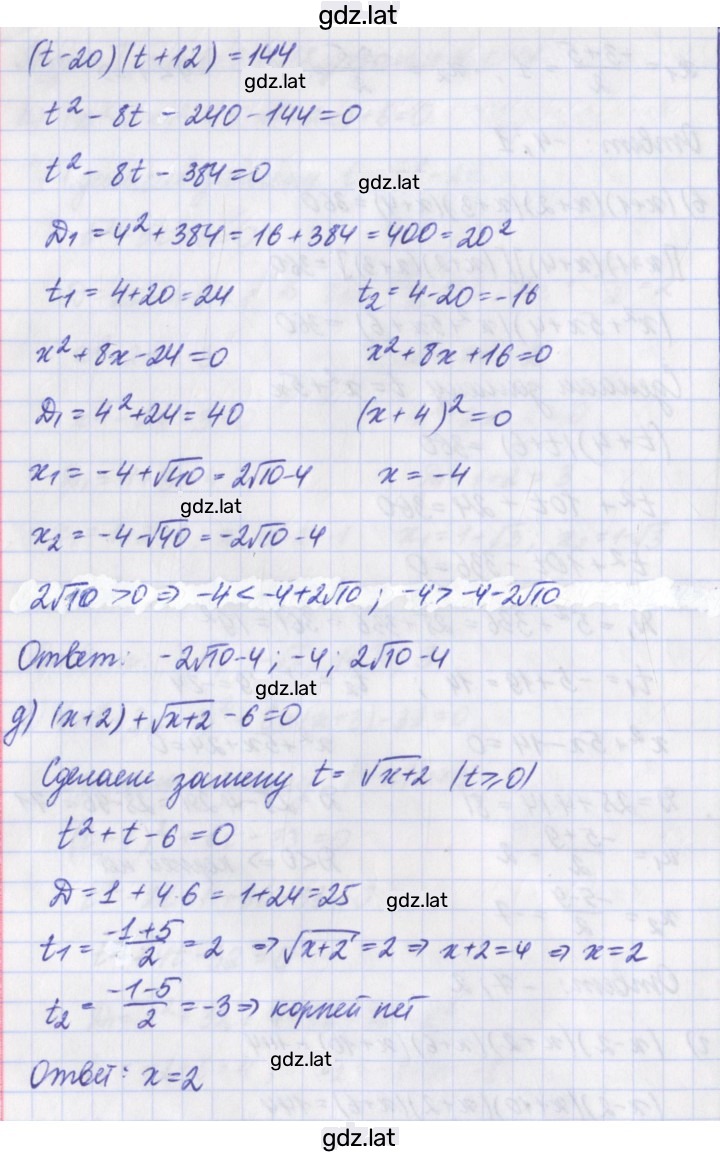 gdz.lat
(t-20)(t+12)=144
gdz.lat
t² - 8t - 240 - 144 = 0
t² - 8t - 384 = 0
gdz.lat
D₁ = 4² + 384 = 16 + 384 = 400 = 20²
t₁ = 4+20 = 24 t₂ = 4-20 = -16
x² + 8x - 24 = 0 x² + 8x + 16 = 0
D₁ = 4² + 24 = 40 (x+4)² = 0
x₁ = -4 + √40 = 2√10 - 4 x = -4
gdz.lat
x₂ = -4 - √40 = -2√10 - 4
2√10 > 0 ⇒ -4 < -4 + 2√10 ; -4 > -4 - 2√10
Ответ: -2√10 - 4 ; -4 ; 2√10 - 4
gdz.lat
д) (x+2) + √x+2 - 6 = 0
Сделаем замену t = √x+2 (t ≥ 0)
t² + t - 6 = 0
D = 1 + 4·6 = 1+24 = 25
gdz.lat
t₁ = -1+5/2 = 2 ⇒ √x+2 = 2 ⇒ x+2 = 4 ⇒ x = 2
t₂ = -1-5/2 = -3 ⇒ корней нет
gdz.lat
Ответ: x = 2
gdz.lat